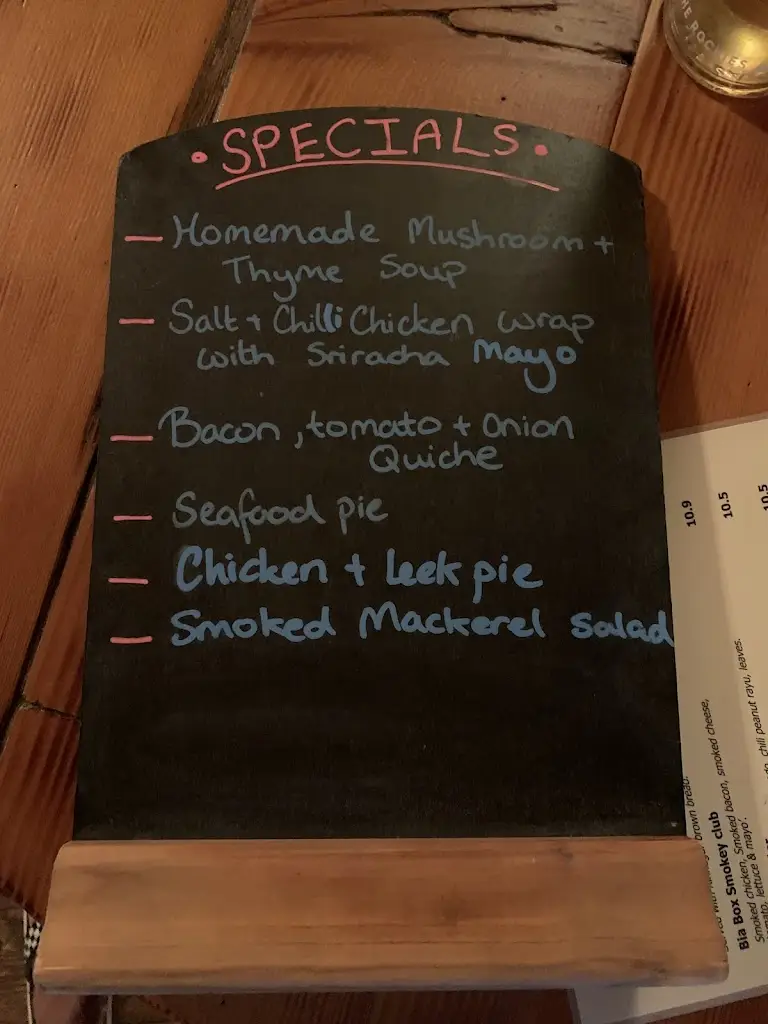 • SPECIALS •
— Homemade Mushroom +
Thyme Soup
— Salt + Chilli Chicken wrap
with Sriracha Mayo
— Bacon, tomato + Onion
Quiche
— Seafood pie
— Chicken + leek pie
— Smoked Mackerel salad
THE ROCKIES
10.9
10.5
10.5
brown bread.
Bia Box Smokey club
Smoked chicken, Smoked bacon, smoked cheese,
lettuce & mayo'.
chilli peanut rayu, leaves.